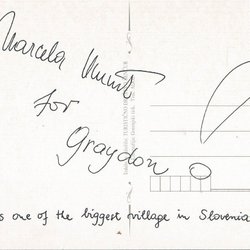 Marcela Munt
for
Graydon
s one of the biggest village in Slovenia